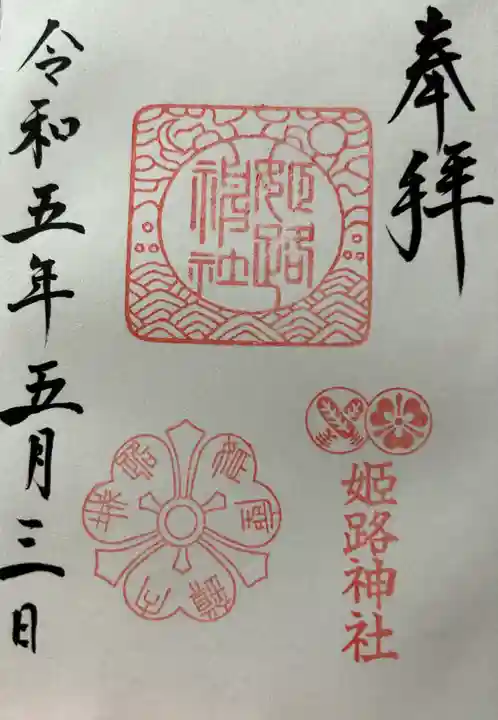 奉拝
姫路神社
姫路神社
令和五年五月三日